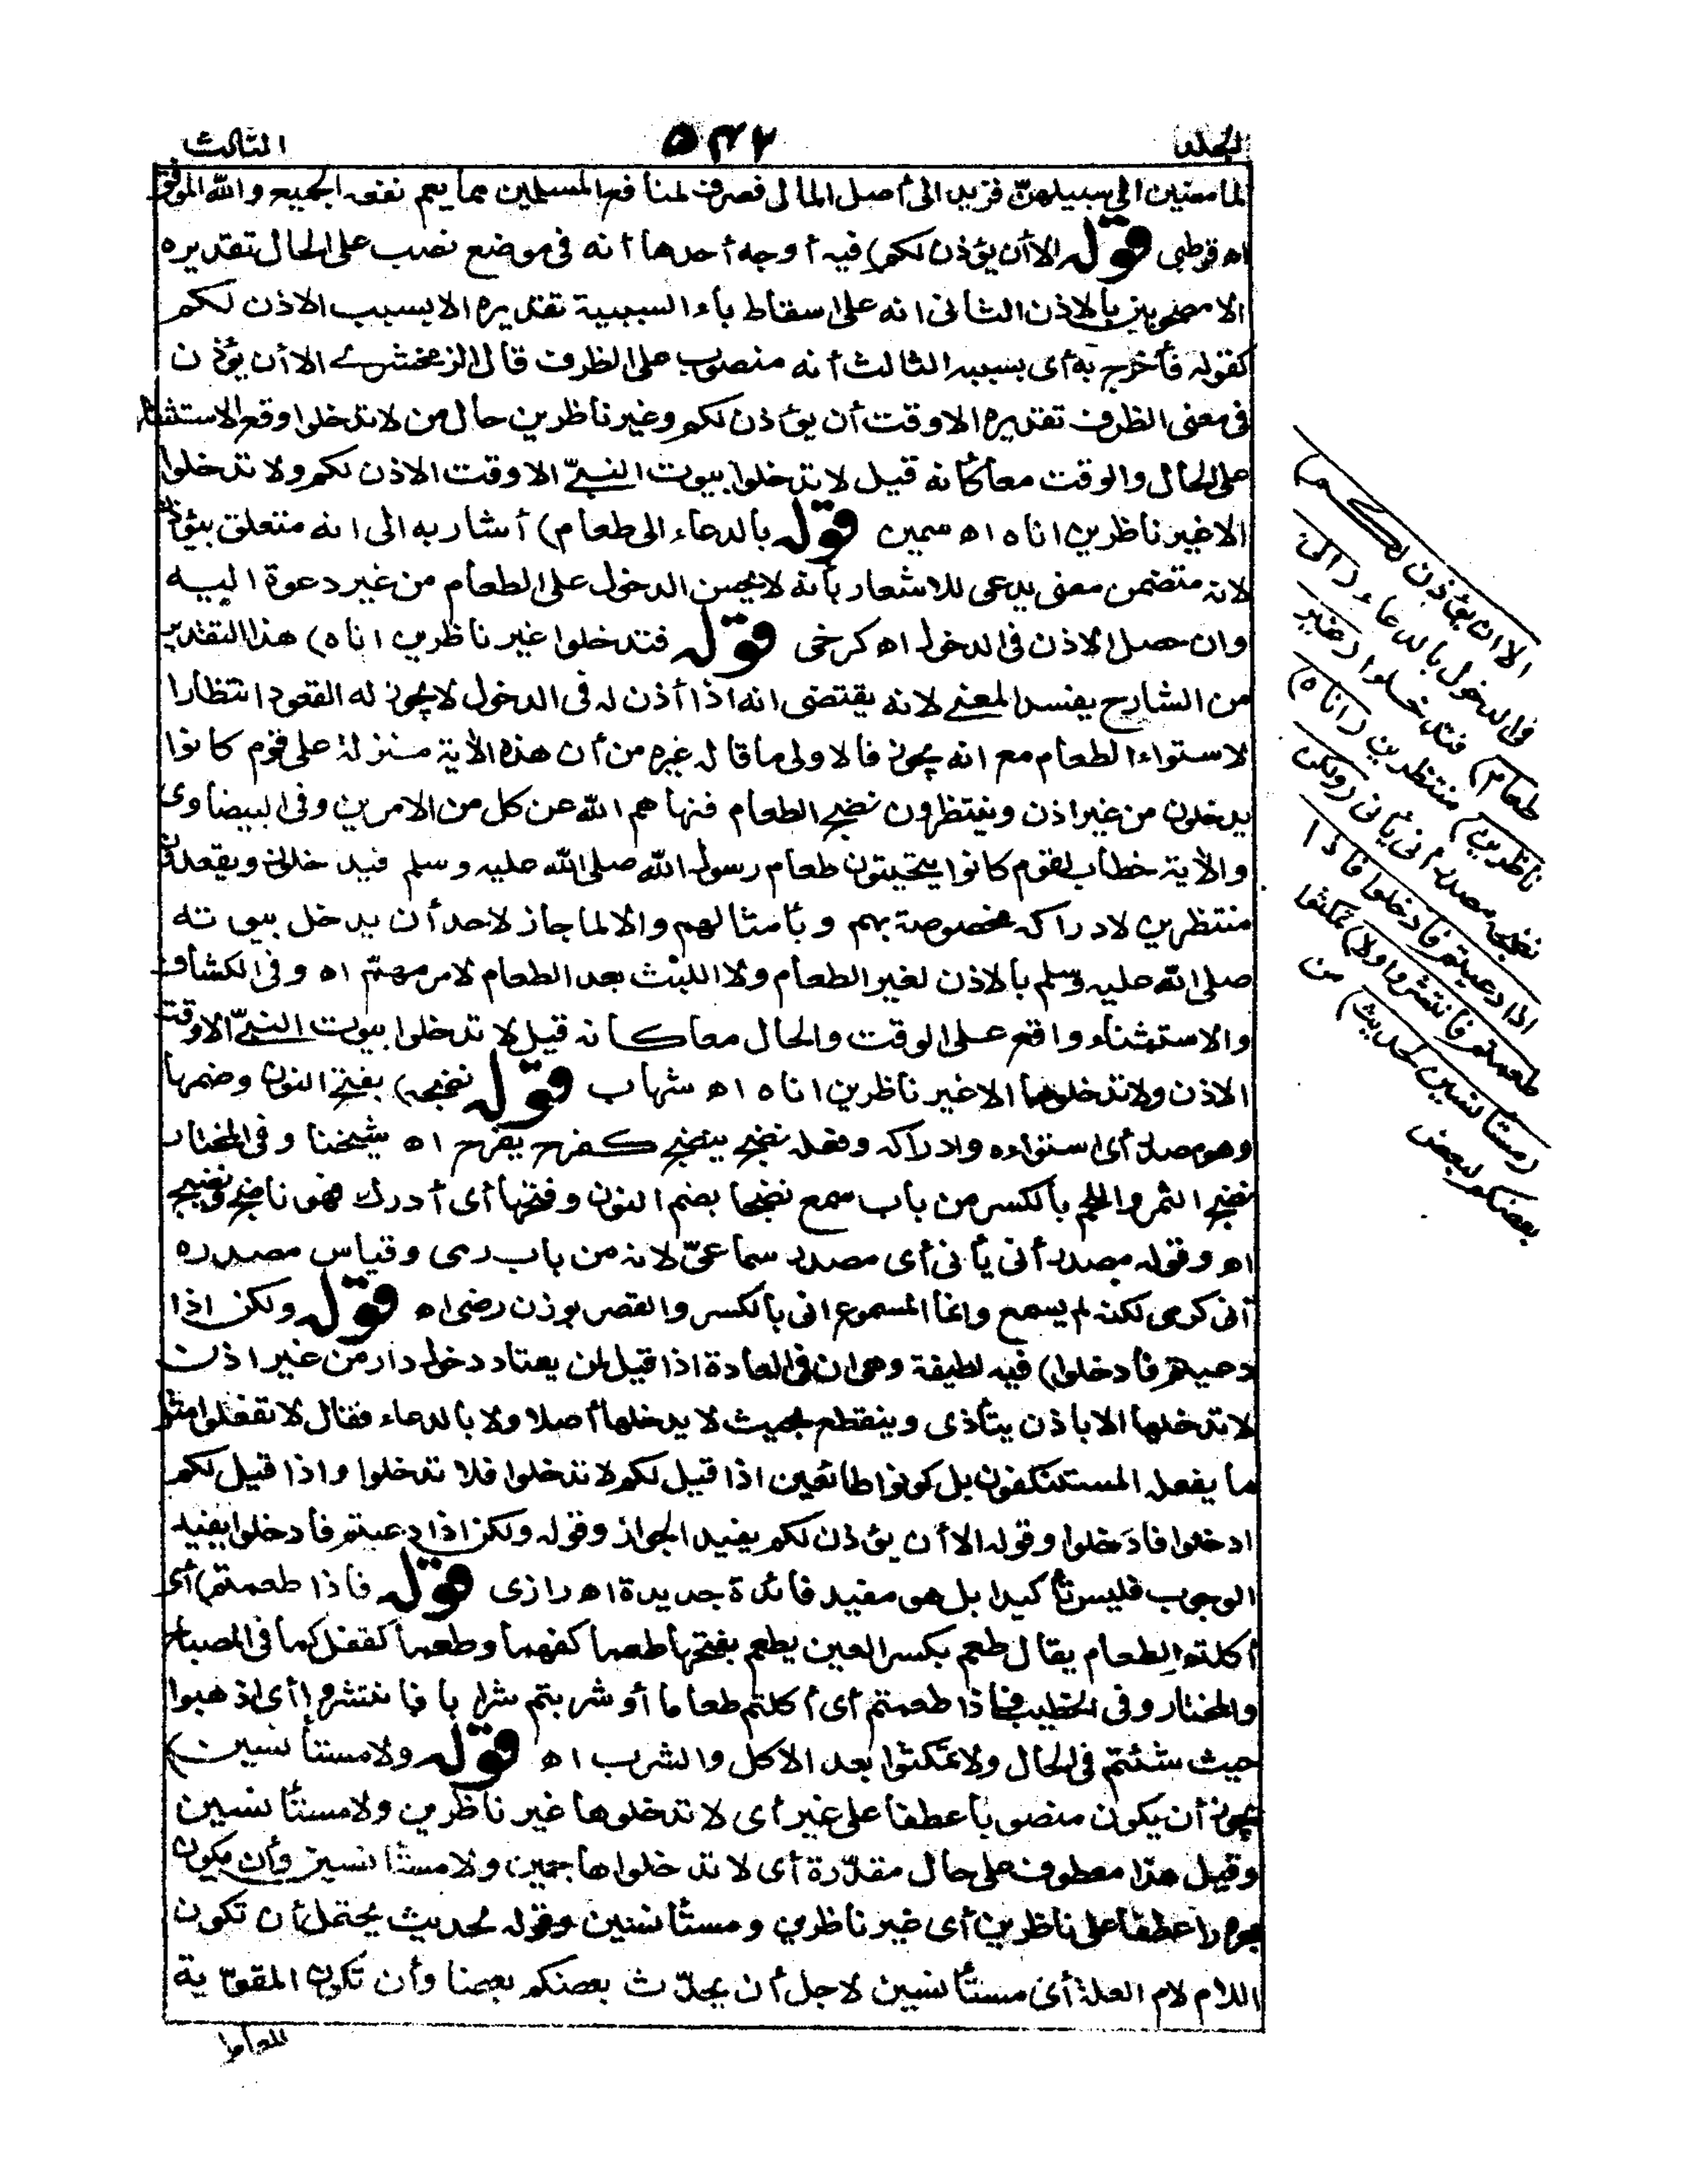 المجلد ٥٤٢ الثالث
لما مضين الى سبيلهن فزيد الى أصل المال فصرف لمنافع المسلمين مما يعم نفعه الجميع والله الموفق
اه قرطبى قوله الا أن يؤذن لكم) فيه أوجه أحدها أنه فى موضع نصب على الحال تقديره
الا مصحوبين بالاذن الثانى انه على اسقاط باء السببية تقديره الا بسبب الاذن لكم
كقوله فأخرج به أى بسببه الثالث أنه منصوب على الظرف قال الزمخشرى الا أن يؤذن
فى معنى الظرف تقديره الا وقت أن يؤذن لكم وغير ناظرين حال من لا تدخلوا وقع الاستثناء
على الحال والوقت معا كأنه قيل لا تدخلوا بيوت النبىّ الا وقت الاذن لكم ولا تدخلوا
الا غير ناظرين اناه اه سمين قوله بالدعاء الى طعام) أشار به الى انه متعلق بيؤذن
لانه متضمن معنى يدعى للاشعار بأنه لا يحسن الدخول على الطعام من غير دعوة اليه
وان حصل الاذن فى الدخول اه كرخى قوله فتدخلوا غير ناظرين اناه) هذا التقدير
من الشارح يفسد المعنى لانه يقتضى انه اذا أذن له فى الدخول لا يجوز له القعود انتظارا
لاستواء الطعام مع انه يجوز فالاولى ما قاله غيره من أن هذه الآية منزلة على قوم كانوا
يدخلون من غير اذن وينتظرون نضج الطعام فنهاهم الله عن كل من الامرين وفى البيضاوى
والآية خطاب لقوم كانوا يتحينون طعام رسول الله صلى الله عليه وسلم فيدخلون ويقعدون
منتظرين لادراكه مخصوصة بهم وبأمثالهم والا لما جاز لاحد أن يدخل بيوته
صلى الله عليه وسلم بالاذن لغير الطعام ولا اللبث بعد الطعام لامر مهتم اه وفى الكشاف
والاستثناء واقع على الوقت والحال معا كأنه قيل لا تدخلوا بيوت النبىّ الا وقت
الاذن ولا تدخلوها الا غير ناظرين اناه اه شهاب قوله نضجه) بفتح النون وضمها
وهو مصدر أى استواءه وادراكه وفعله نضج ينضج كفرح يفرح اه شيخنا وفى المختار
نضج الثمر واللحم بالكسر من باب سمع نضجا بضم النون وفتحها أى أدرك فهو ناضج ونضيج
اه وقوله مصدر أنى يأنى أى مصدر سماعىّ لانه من باب رمى وقياس مصدره
أنى كرمى لكنه لم يسمع وانما المسموع انى بالكسر والقصر بوزن رضى اه قوله ولكن اذا
دعيتم فادخلوا) فيه لطيفة وهى ان فى العادة اذا قيل لمن يعتاد دخول دار من غير اذن
لا تدخلها الا باذن يتأذى وينقطع بحيث لا يدخلها أصلا ولا بالدعاء فقال لا تفعلوا مثل
ما يفعل المستنكفون بل كونوا طائعين اذا قيل لكم لا تدخلوا فلا تدخلوا واذا قيل لكم
ادخلوا فادخلوا وقوله الا أن يؤذن لكم يفيد الجواز وقوله ولكن اذا دعيتم فادخلوا يفيد
الوجوب فليس تأكيدا بل هو مفيد فائدة جديدة اه رازى قوله فاذا طعمتم) أى
أكلتم الطعام يقال طعم بكسر العين يطعم بفتحها طعما كفهما وطعما كقفل كما فى المصباح
والمختار وفى الخطيب فاذا طعمتم أى أكلتم طعاما أو شربتم شرابا فانتشروا أى اذهبوا
حيث شئتم فى الحال ولا تمكثوا بعد الاكل والشرب اه قوله ولا مستأنسين)
يجوز أن يكون منصوبا عطفا على غير أى لا تدخلوها غير ناظرين ولا مستأنسين
وقيل هذا معطوف على حال مقدّرة أى لا تدخلوا هاجمين ولا مستأنسين وأن يكون
مجرورا عطفا على ناظرين أى غير ناظرين ومستأنسين وقوله لحديث يحتمل أن تكون
اللام لام العلة أى مستأنسين لاجل أن يحدّث بعضكم بعضا وأن تكون المقوّية
الا ان يؤذن لكم)
فى الدخول بالدعاء (الى
طعام) فتدخلوا (غير
ناظرين) منتظرين (اناه)
نضجه مصدر أنى يأنى (ولكن
اذا دعيتم فادخلوا فاذا
طعمتم فانتشروا ولا) تمكثوا
(مستأنسين لحديث) من
بعضكم لبعض